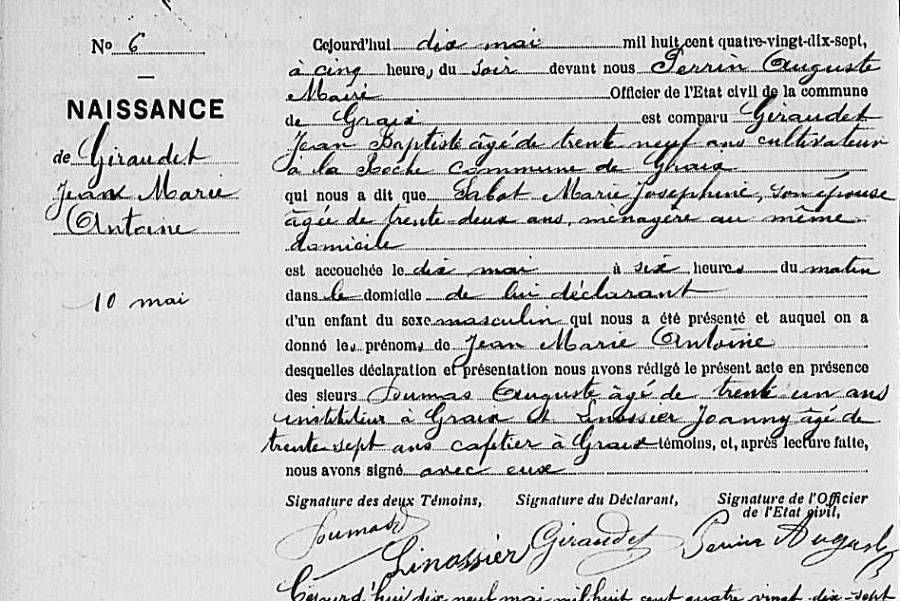 No 6
NAISSANCE
de Giraudet
Jean Marie
Antoine
10 mai
Cejourd'hui dix mai mil huit cent quatre-vingt-dix-sept,
à cinq heures du soir devant nous Perrin Auguste
Maire Officier de l'Etat civil de la commune
de Graix est comparu Giraudet
Jean Baptiste âgé de trente neuf ans cultivateur
à la Roche commune de Graix
qui nous a dit que Sabot Marie Joséphine, son épouse
âgée de trente deux ans, ménagère au même
domicile
est accouchée le dix mai à six heures du matin
dans le domicile de lui déclarant
d'un enfant du sexe masculin qui nous a été présenté et auquel on a
donné les prénoms de Jean Marie Antoine
desquelles déclaration et présentation nous avons rédigé le présent acte en présence
des sieurs Soumas Auguste âgé de trente un ans
instituteur à Graix et Linossier Joanny âgé de
trente sept ans à Graix témoins, et, après lecture faite,
nous avons signé avec eux
Signature des deux Témoins, Signature du Déclarant, Signature de l'Officier
de l'Etat civil,
Soumas
Linossier Giraudet Perrin Auguste
Cejourd'hui dix neuf mai mil huit cent quatre vingt dix-sept